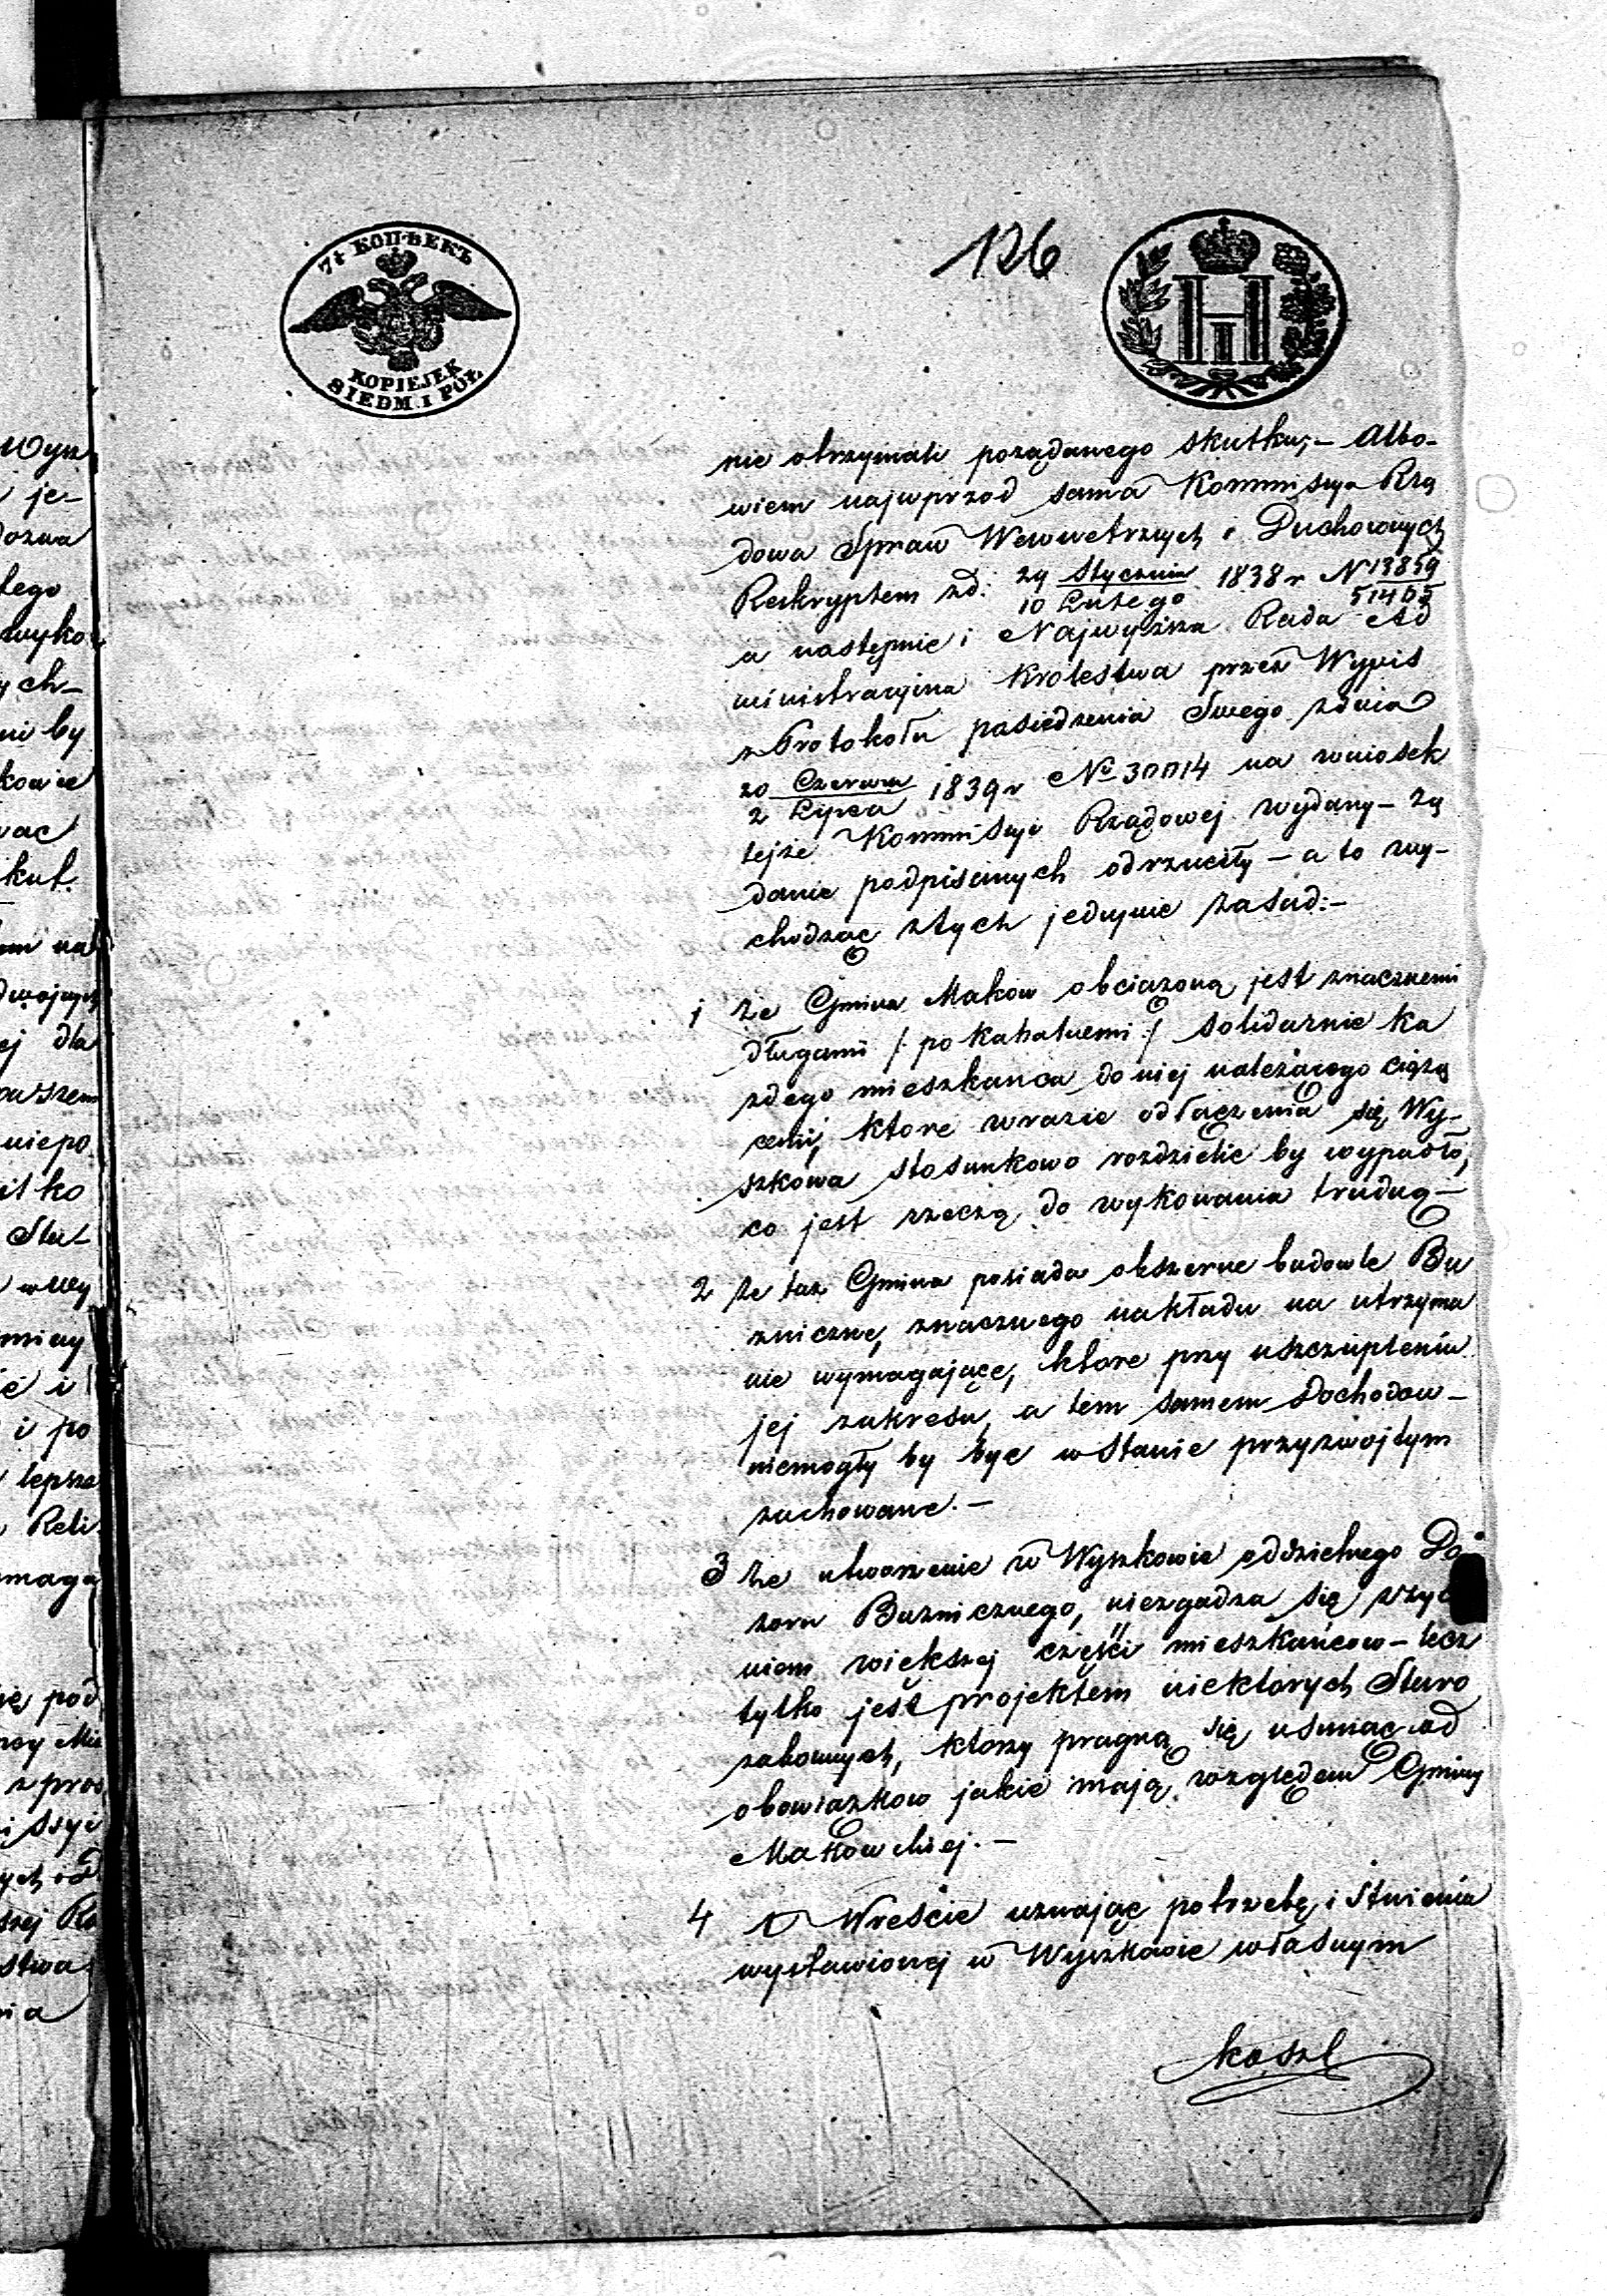 7½ КОПѢЕКЪ
KOPIEJEK
SIEDM I PÓŁ
126
nie otrzymali pożądanego skutku; – Albo-
wiem najwprzod sama Kommissya Rzą
dowa Spraw Wewnetrznych i Duchownych
Reskryptem zd: 29 Stycznia / 10 Lutego 1838 r N 13859 /
a następnie i Najwyższa Rada Ad
ministracyjna Krolestwa przez Wypis
z Protokołu posiedzenia Swego zdnia
20 Czerwca / 2 Lipca 1839 r No
tejże Kommissyi Rządowej wydany – żą
danie podpisanych odrzuciły – a to wy-
chodząc ztych jedynie zasad: –
1 że Gmina Makow obciążoną jest znacznemi
długami /: po kahalnemi :/ solidarnie ka
żdego mieszkanca do niej należącego ciążą
cemi, ktore wrazie odłączenia się Wy-
szkowa stosunkowo rozdzielic by wypadło,
co jest rzeczą do wykonania trudną –
2 że taż Gmina posiada obszerne budowle Bu
zniczne, znacznego nakładu na utrzyma
nie wymagające, ktore przy uszczupleniu
jej zakresu, a tem samem dochodow –
niemogły by byc w stanie przyzwojtym
zachowane. –
3 że utworzenie w Wyszkowie oddzielnego Do
zoru Buznicznego, niezgadza się zzyc
niem wiekszej części mieszkańcow – lecz
tylko jest projektem niektorych Staro
zakonnych, ktorzy pragną się usunąc od
obowiązkow jakie mają względem Gminy
Makowskiej. –
4 Wreście uznając potrzebę istnienia
wystawionej w Wyszkowie własnym
koszt
Wysz
je-
tego
wyko
ych–
ni by
kowie
kut.
dwojnych
ej dla
niepo
Stu–
i po
lepsze
Reli
maga
się pod
z pros
szej Ra
stwa